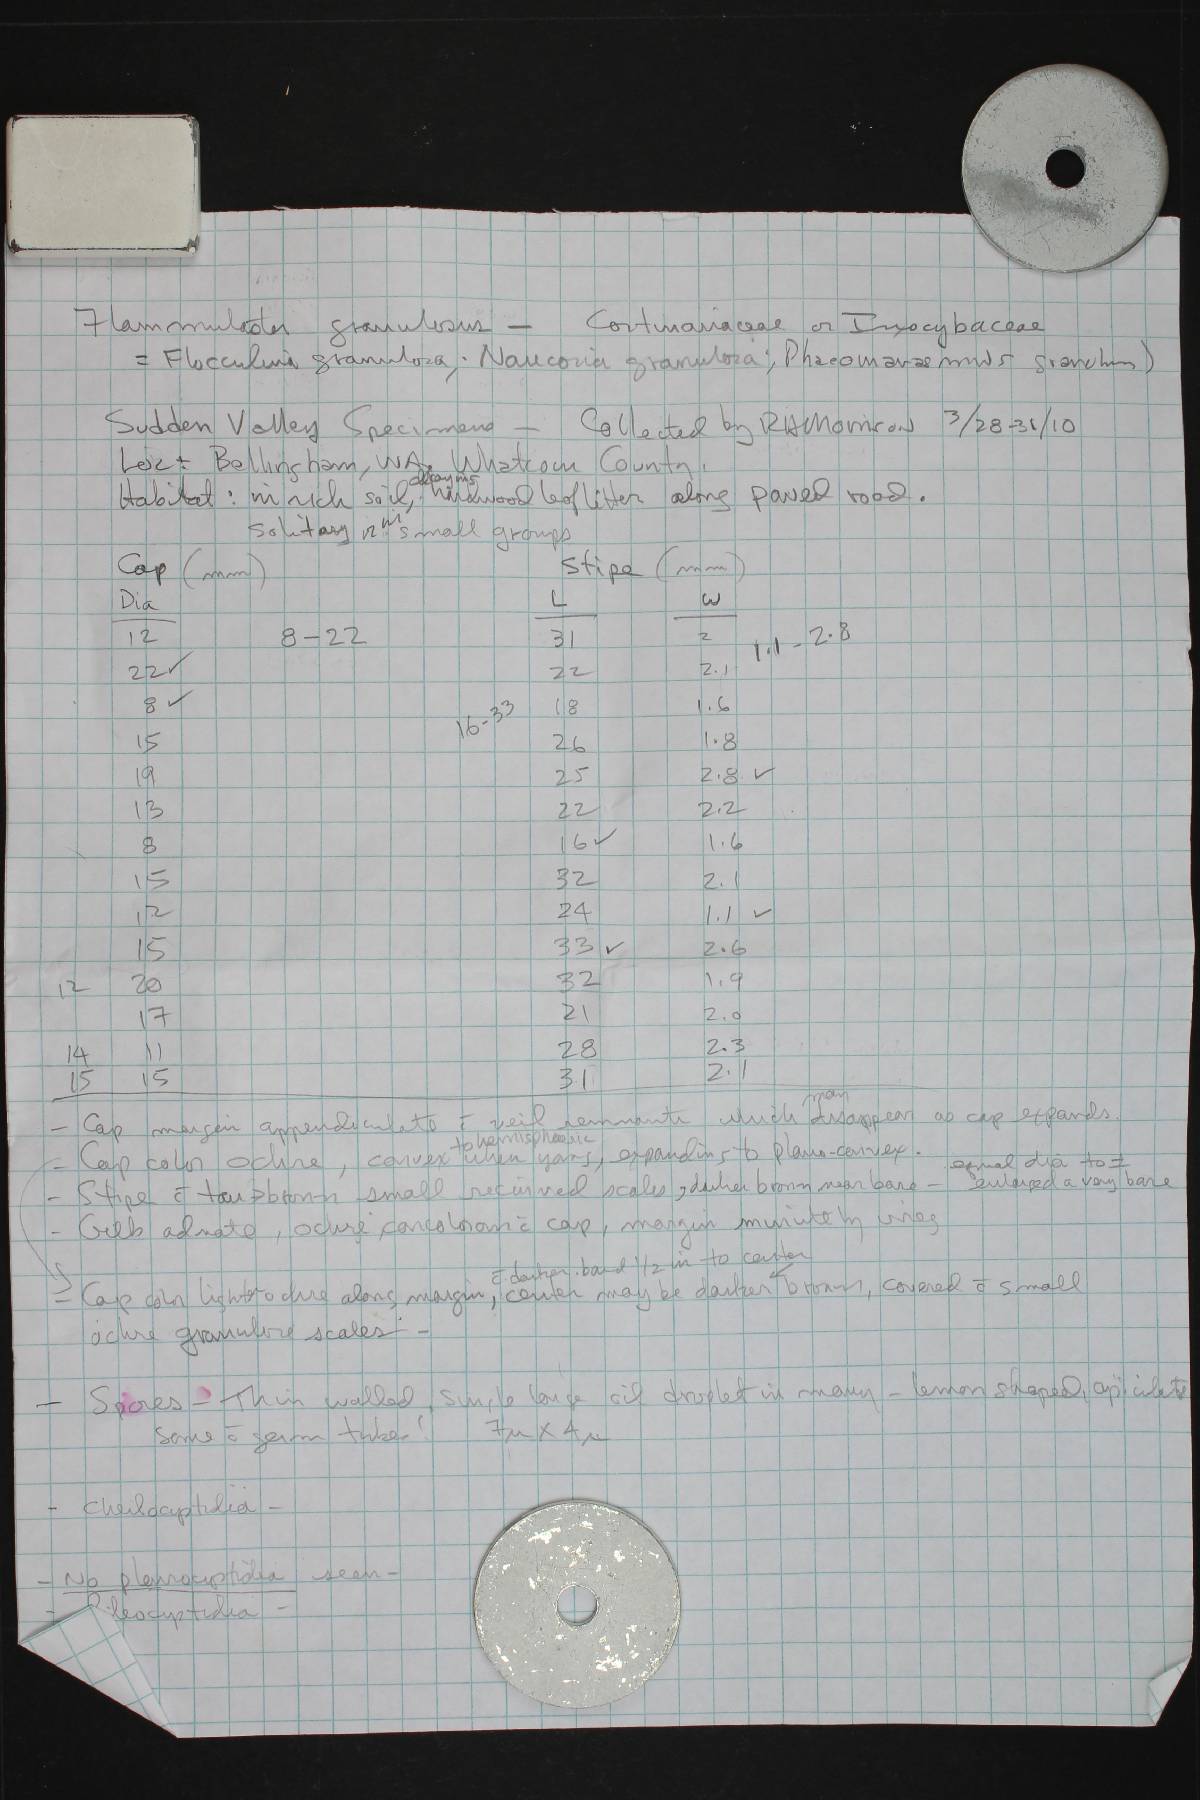 Flammulaster granulosus — Cortinariaceae or Inocybaceae
= Flocculina granulosa; Naucoria granulosa; Phaeomarasmius granulosus)
Sudden Valley Specimens — Collected by RHMorrison 3/28-31/10
Loc: Bellingham, WA. Whatcom County.
decaying
Habitat: in rich soil, hardwood leaf litter along paved road.
Solitary or in small groups
Cap (mm) Stipe (mm)
Dia L W
12 8-22 31 2 1.1-2.8
22✓ 22 2.1
8✓ 16-33 18 1.6
15 26 1.8
19 25 2.8 ✓
13 22 2.2
8 16✓ 1.6
15 32 2.1
12 24 1.1 ✓
15 33 ✓ 2.6
12 20 32 1.9
17 21 2.0
14 11 28 2.3
15 15 31 2.1
may
- Cap margin appendiculate c̄ veil remnants which disappear as cap expands.
to hemispheric
- Cap color ochre, convex when young, expanding to plano-convex.
equal dia to ±
- Stipe c̄ tan-brown small recurved scales, darker brown near base - enlarged a very base
- Gills adnate, ochre, concolorous c̄ cap, margin minutely
c̄ darker band 1/2 in to center
- Cap color light ochre along margin, center may be darker brown, covered c̄ small
ochre granulose scales -
- Spores - Thin walled, single large oil droplet in many - lemon shaped, apiculate
some c̄ germ tube! 7μ X 4μ
- Cheilocystidia -
- No pleurocystidia seen -
- Pileocystidia -